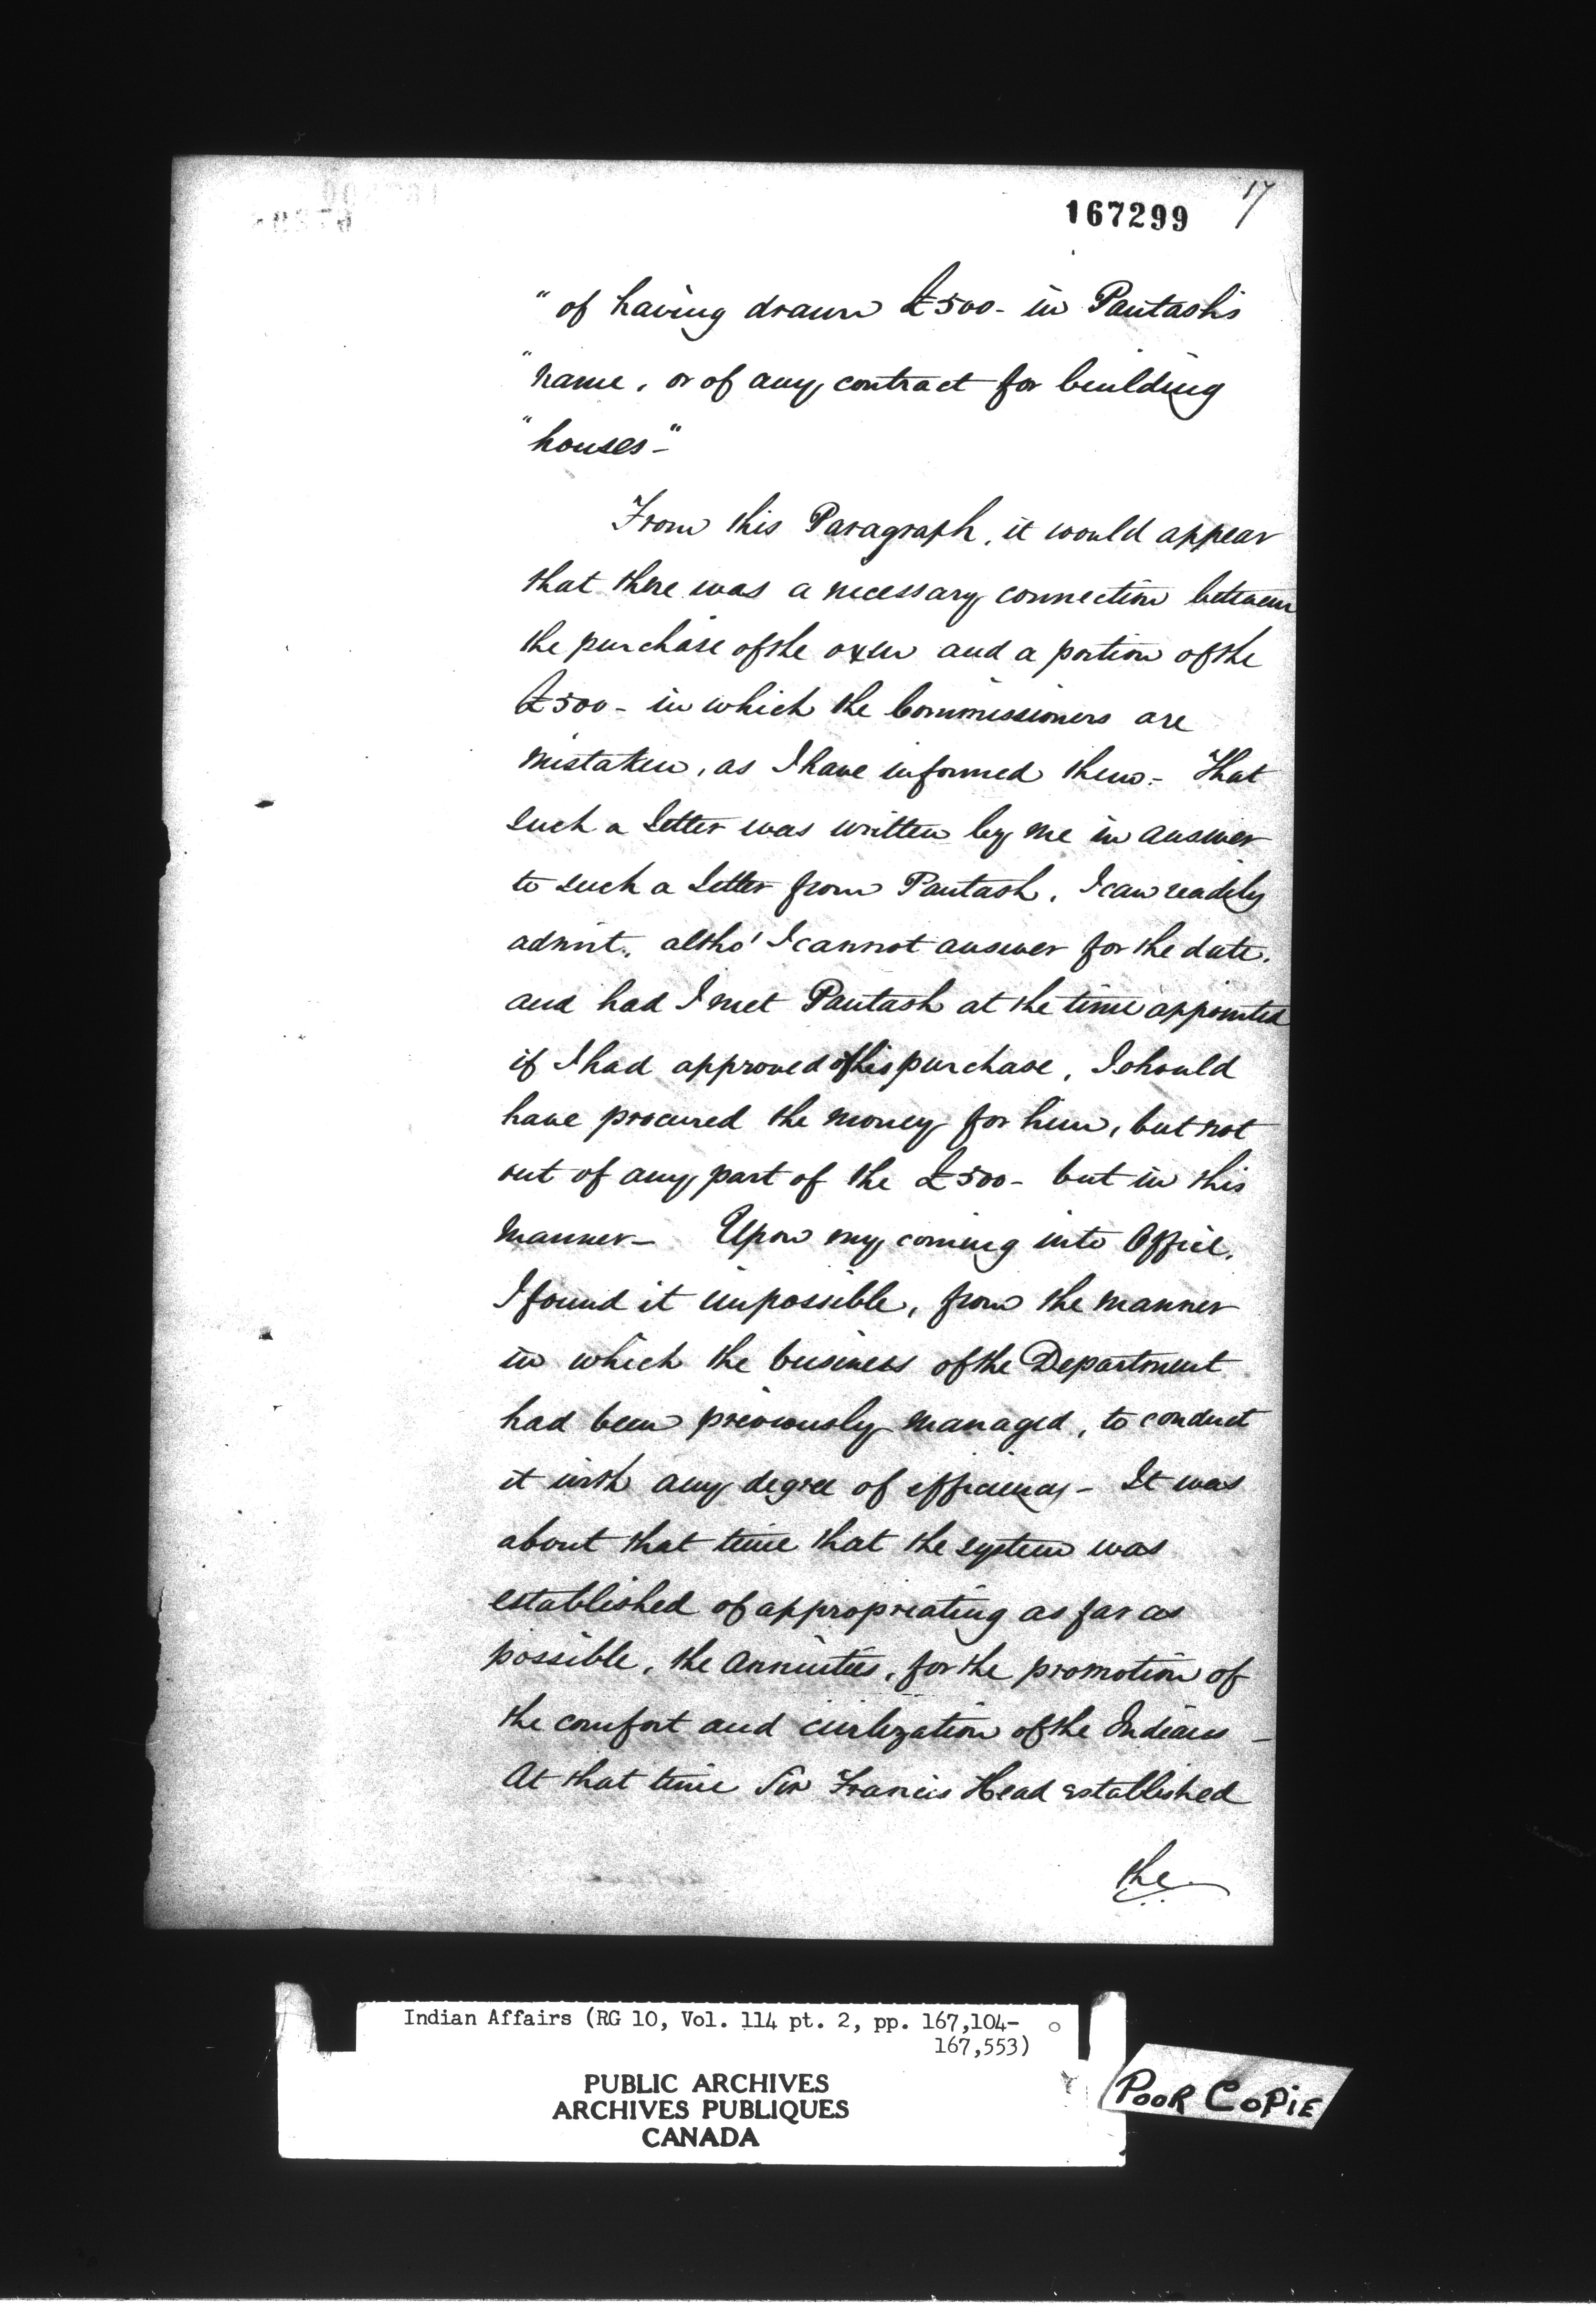 167299
17
" of having drawn £500 - in Pautash's
" name, or of any contract for building
" houses - "
From this Paragraph, it would appear
that there was a necessary connection between
the purchase of the oxen and a portion of the
£500 - in which the Commissioners are
mistaken, as I have informed them - That
such a letter was written by me in answer
to such a letter from Pautash, I can readily
admit, altho' I cannot answer for the date.
and had I met Pautash at the time appointed
if I had approved of his purchase, I should
have procured the money for him, but not
out of any part of the £500 - but in this
manner - Upon my coming into Office,
I found it impossible, from the manner
in which the business of the Department
had been previously managed, to conduct
it with any degree of efficiency - It was
about that time that the system was
established of appropriating as far as
possible, the Annuities, for the promotion of
the comfort and civilization of the Indians -
At that time Sir Francis Head established
the
Indian Affairs (RG 10, Vol. 114 pt. 2, pp. 167,104-
167,553)
PUBLIC ARCHIVES
ARCHIVES PUBLIQUES
CANADA
POOR COPIE